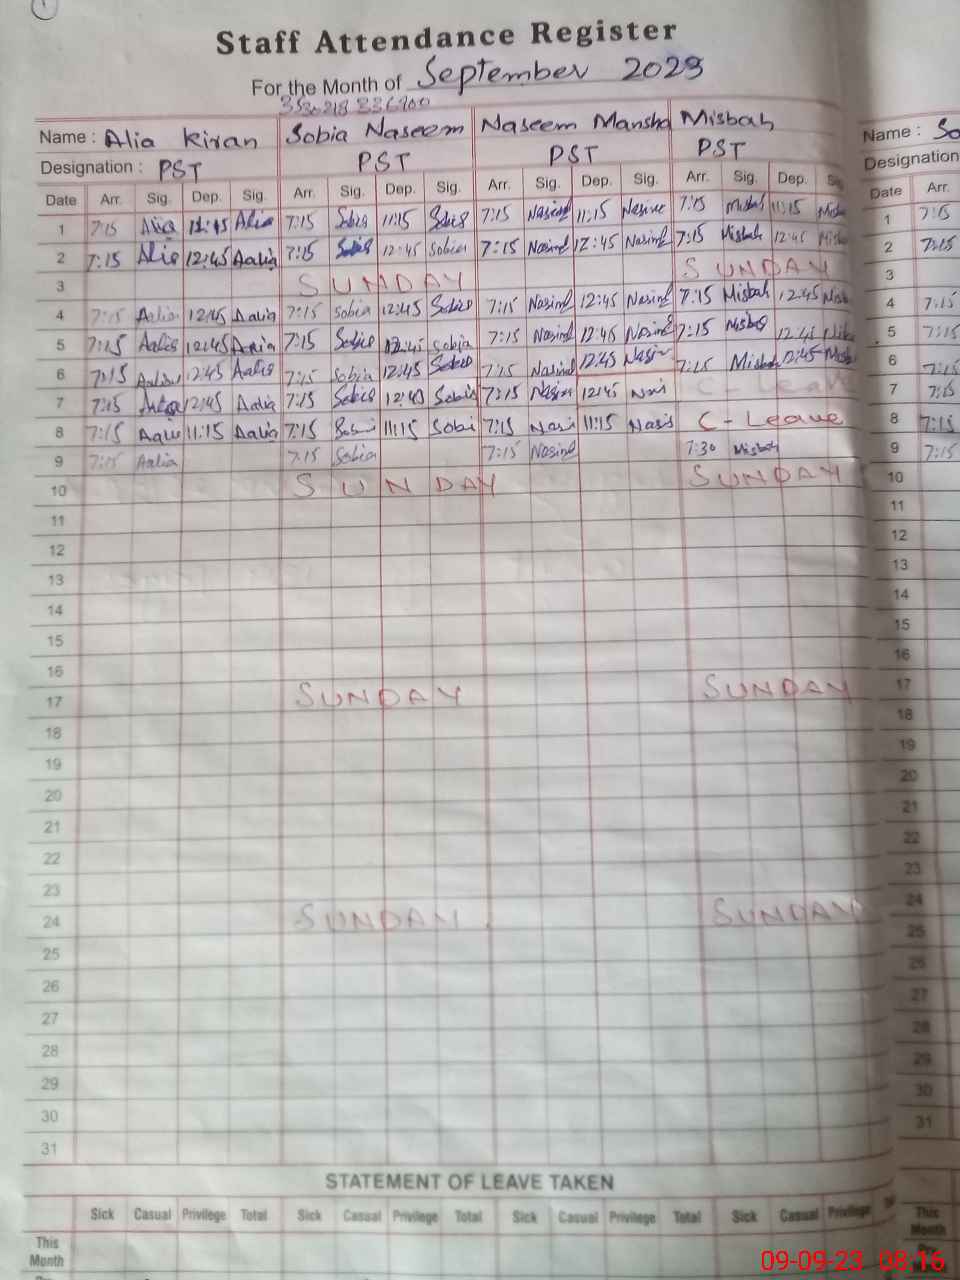 1
Staff Attendance Register
For the Month of September 2023
Name : Alia Kiran Sobia Naseem Naseem Mansha Misbah Name : So
Designation : PST PST PST PST Designation
Date Arr. Sig. Dep. Sig. Arr. Sig. Dep. Sig. Arr. Sig. Dep. Sig. Arr. Sig. Dep. Sig Date Arr.
1 7:15 Alia 11:15 Alia 7:15 Sobia 11:15 Sobia 7:15 11:15 7:15 Misbah 11:15 Misba 1 7:15
2 7:15 Alia 12:45 Aalia 7:15 12:45 Sobia 7:15 12:45 7:15 Misbah 12:45 Misb 2 7:15
3 SUNDAY SUNDAY 3
4 7:15 Aalia 12:45 Aalia 7:15 Sobia 12:45 Sobia 7:15 12:45 7:15 Misbah 12:45 Misb 4 7:15
5 7:15 Aalia 12:45 Aalia 7:15 Sobia 12:45 Sobia 7:15 12:45 7:15 12:45 5 7:15
6 7:15 Aalia 12:45 Aalia 7:15 Sobia 12:45 Sobia 7:15 12:45 7:15 Misbah 12:45 Misb 6 7:15
7 7:15 12:45 Aalia 7:15 Sobia 12:45 Sobia 7:15 12:45 C - Leave 7 7:15
8 7:15 Aalia 11:15 Aalia 7:15 11:15 Sobi 7:15 11:15 C - Leave 8 7:15
9 7:15 Aalia 7:15 Sobia 7:15 7:30 Misbah 9 7:15
10 SUNDAY SUNDAY 10
11 11
12 12
13 13
14 14
15 15
16 16
17 SUNDAY SUNDAY 17
18 18
19 19
20 20
21 21
22 22
23 23
24 SUNDAY SUNDAY 24
25 25
26 26
27 27
28 28
29 29
30 30
31 31
STATEMENT OF LEAVE TAKEN
Sick Casual Privilege Total Sick Casual Privilege Total Sick Casual Privilege Total Sick Casual Privilege
This Month This Month
09-09-23 08:16